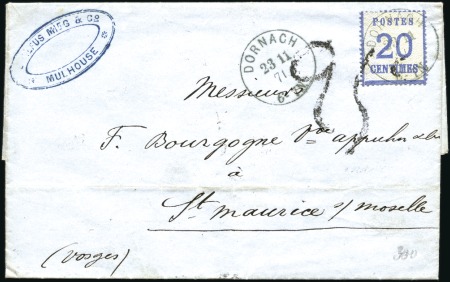 MIEG & Cº
MULHOUSE
DORNACH
23 11
71
POSTES
20
CENTIMES
2
Messieurs
F. Bourgogne Vve
à
St. Maurice s/ Moselle
(Vosges)